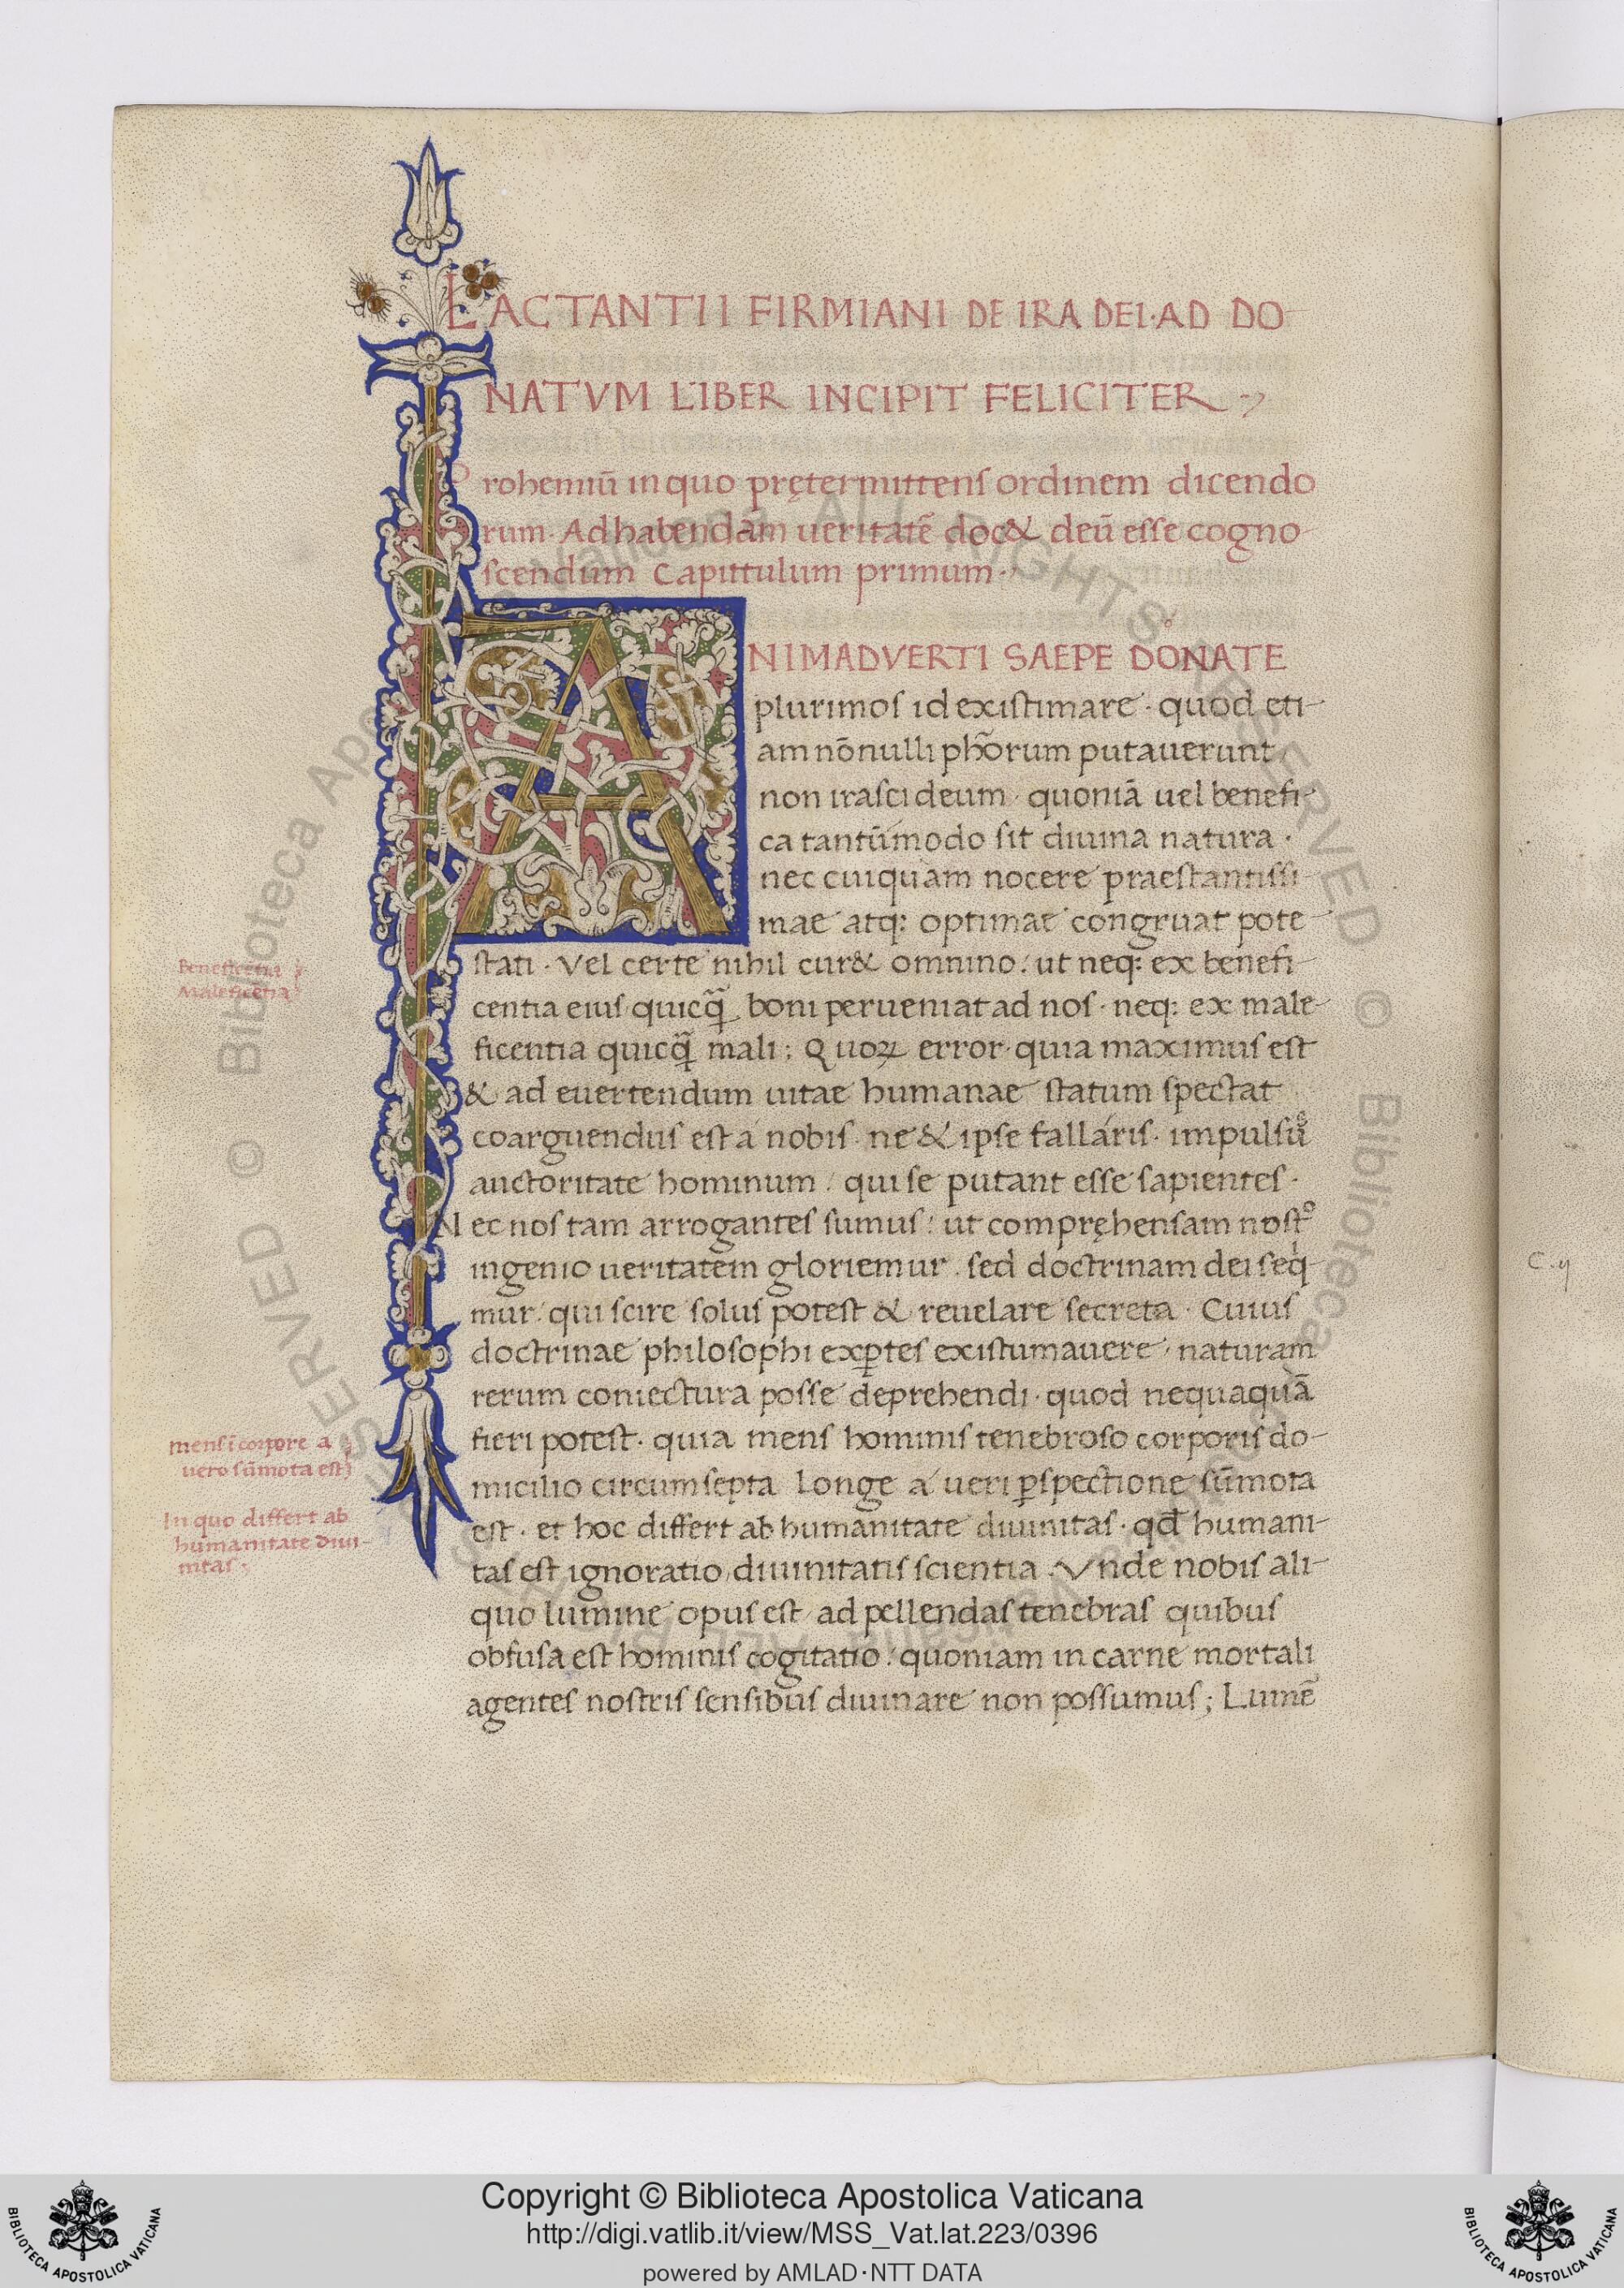 LACTANTII FIRMIANI DE IRA DEI·AD DO-
NATVM LIBER INCIPIT FELICITER
Prohemiū in quo prętermittens ordinem dicendo
rum· Ad habendam ueritatē doc& deū esse cogno-
scendum Capittulum primum·
ANIMADVERTI SAEPE DONATE
plurimos id existimare· quod eti-
am nōnulli ph̄orum putauerunt
non irasci deum· quoniā uel benefi-
ca tantūmodo sit diuina natura·
nec cuiquam nocere praestantissi-
mae atq: optimae congruat pote-
stati· Vel certe nihil cur& omnino: ut neq: ex benefi-
centia eius quicq̄ boni perueniat ad nos· neq: ex male-
ficentia quicq̄ mali; Quoꝝ error· quia maximus est
& ad euertendum uitae humanae statum spectat
coarguendus est á nobis· ne & ipse fallaris· impulsū
auctoritate hominum: qui se putant esse sapientes·
Nec nos tam arrogantes sumus: ut compręhensam nostº
ingenio ueritatem gloriemur· sed doctrinam dei seqⁱ-
mur· qui scire solus potest & reuelare secreta· Cuius
doctrinae philosophi exꝑtes existumauere, naturam
rerum coniectura posse deprehendi· quod nequaquā
fieri potest· quia mens hominis tenebroso corporis do-
micilio circumsepta longe á ueri ꝑspectione sūmota
est· et hoc differt ab humanitate diuinitas· qđ humani-
tas est ignoratio, diuinitatis scientia. Vnde nobis ali-
quo lumine opus est, ad pellendas tenebras quibus
obfusa est hominis cogitatio: quoniam in carne mortali
agentes nostris sensibus diuinare non possumus; Lumē
Beneficētia
Maleficētia
mens ī corpore a
uero sūmota est
In quo differt ab
humanitate diui-
nitas;
C·y
Copyright © Biblioteca Apostolica Vaticana
http://digi.vatlib.it/view/MSS_Vat.lat.223/0396
powered by AMLAD·NTT DATA
BIBLIOTECA APOSTOLICA VATICANA
BIBLIOTECA APOSTOLICA VATICANA